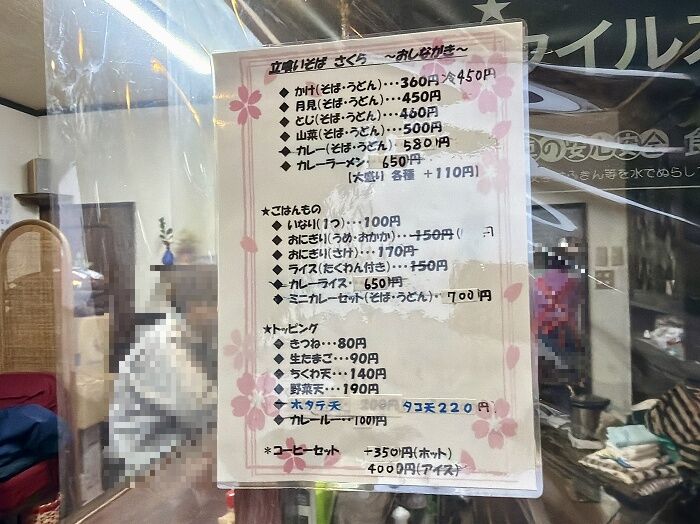 立喰いそば さくら ～おしながき～
◆ かけ(そば・うどん)・・・360円 冷450円
◆ 月見(そば・うどん)・・・450円
◆ とじ(そば・うどん)・・・460円
◆ 山菜(そば・うどん)・・・500円
◆ カレー(そば・うどん) 580円
◆ カレーラーメン・ 650円
【大盛り 各種 +110円】
★ごはんもの
◆ いなり(1つ)・・・100円
◆ おにぎり(うめ・おかか)・・・150円( 円
◆ おにぎり(さけ)・・・170円
◆ ライス(たくわん付き)・・・150円
◆ カレーライス・ 650円
◆ ミニカレーセット(そば・うどん)・ 700円
★トッピング
◆ きつね・・・80円
◆ 生たまご・・・90円
◆ ちくわ天・・・140円
◆ 野菜天・・・190円
◆ ホタテ天 200円 タコ天220円
◆ カレールー・・・100円
*コーヒーセット +350円(ホット)
400円(アイス)
ウイルス
食
ふきん等を水でぬらし